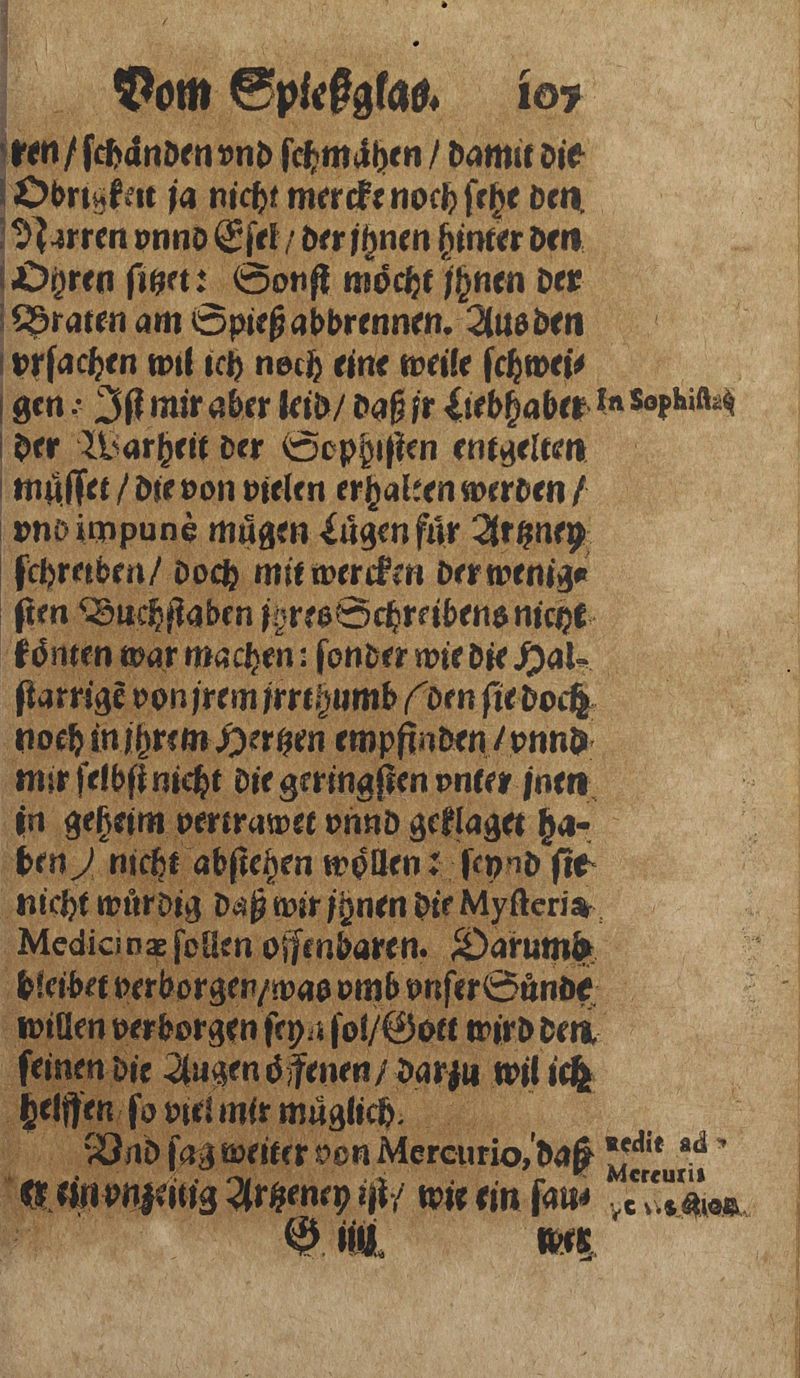 Vom Spießglas. 107
ren / schånden vnd schmåhen / damit die
Obrigkeit ja nicht mercke noch sehe den
Narren vnnd Esel / der jhnen hinter den
Ohren sitzet: Sonst möcht jhnen der
Braten am Spieß abbrennen. Aus den
vrsachen wil ich noch eine weile schwei-
gen: Ist mir aber leid / daß jr Liebhaber In Sophistas
der Warheit der Sophisten entgelten
müsset / die von vielen erhalten werden /
vnd impunè mügen Lügen für Artzney
schreiben / doch mit wercken der wenig-
sten Buchstaben jhres Schreibens nicht
könten war machen: sonder wie die Hal-
starrigẽ von jrem jrrthumb (den sie doch
noch in jhrem Hertzen empfinden / vnnd
mir selbst nicht die geringsten vnter jnen
in geheim vertrawet vnnd geklaget ha-
ben) nicht abstehen wöllen: seynd sie
nicht würdig daß wir jhnen die Mysteria
Medicinæ sollen offenbaren. Darumb
bleibet verborgen / was vmb vnser Sünde
willen verborgen seyn sol / Gott wird den
seinen die Augen öffenen / darzu wil ich
helffen so viel mir müglich.
Vnd sag weiter von Mercurio, daß redit ad
er ein vnzeitig Artzeney ist / wie ein sau- Mercurii
G iiij wer